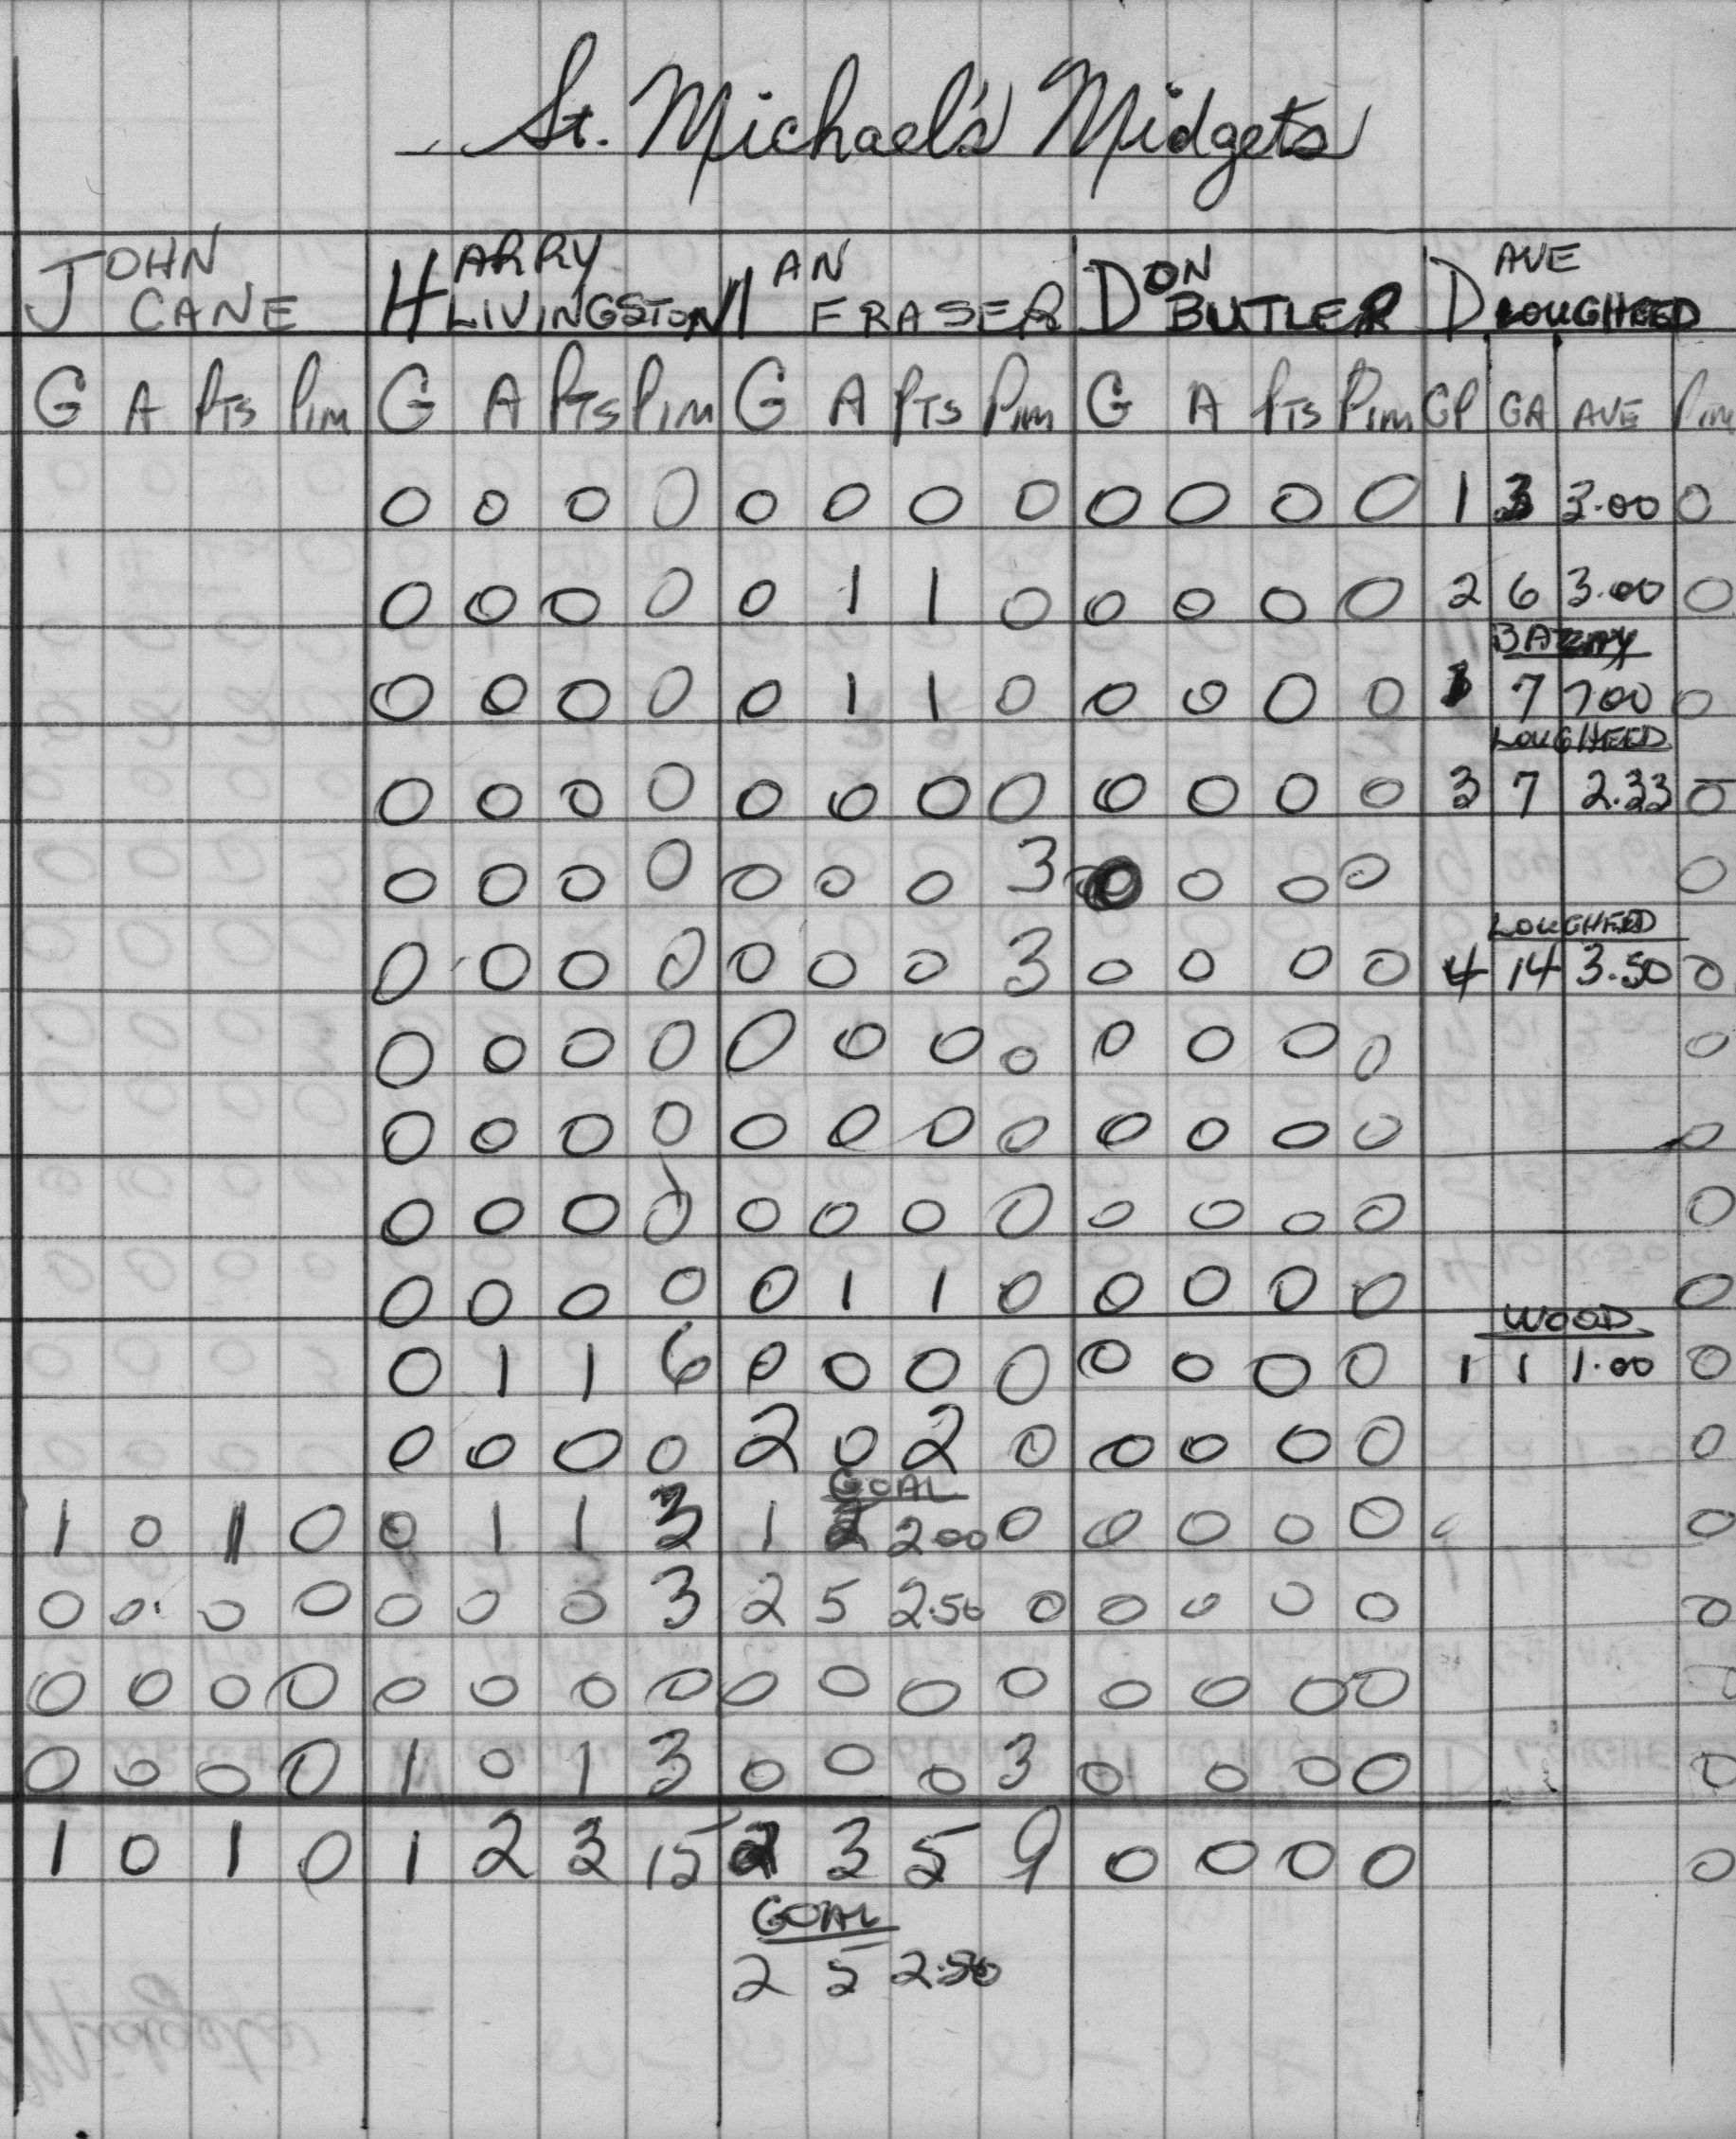 St. Michael's Midgets
JOHN CANE HARRY LIVINGSTON IAN FRASER DON BUTLER DAVE LOUGHEED
G A PTS PIM G A PTS PIM G A PTS PIM G A PTS PIM GP GA AVE PIM
0 0 0 0 0 0 0 0 0 0 0 0 1 3 3.00 0
0 0 0 0 0 1 1 0 0 0 0 0 2 6 3.00 0
0 0 0 0 0 1 1 0 0 0 0 0 7 7 00 0
LOUGHEED
0 0 0 0 0 0 0 0 0 0 0 0 3 7 2.33 0
0 0 0 0 0 0 0 3 0 0 0 0 0
LOUGHEED
0 0 0 0 0 0 0 3 0 0 0 0 4 14 3.50 0
0 0 0 0 0 0 0 0 0 0 0 0 0
0 0 0 0 0 0 0 0 0 0 0 0 0
0 0 0 0 0 0 0 0 0 0 0 0 0
0 0 0 0 0 1 1 0 0 0 0 0 0
WOOD
0 1 1 6 0 0 0 0 0 0 0 0 1 1 1.00 0
0 0 0 0 2 0 2 0 0 0 0 0 0
GOAL
1 0 1 0 0 1 1 3 1 2 2 00 0 0 0 0 0 0
0 0 0 0 0 0 0 3 2 5 2.50 0 0 0 0 0 0
0 0 0 0 0 0 0 0 0 0 0 0 0 0 0 0 0
0 0 0 0 1 0 1 3 0 0 0 3 0 0 0 0 0
1 0 1 0 1 2 3 15 2 3 5 9 0 0 0 0 0
GOAL
2 5 2.50